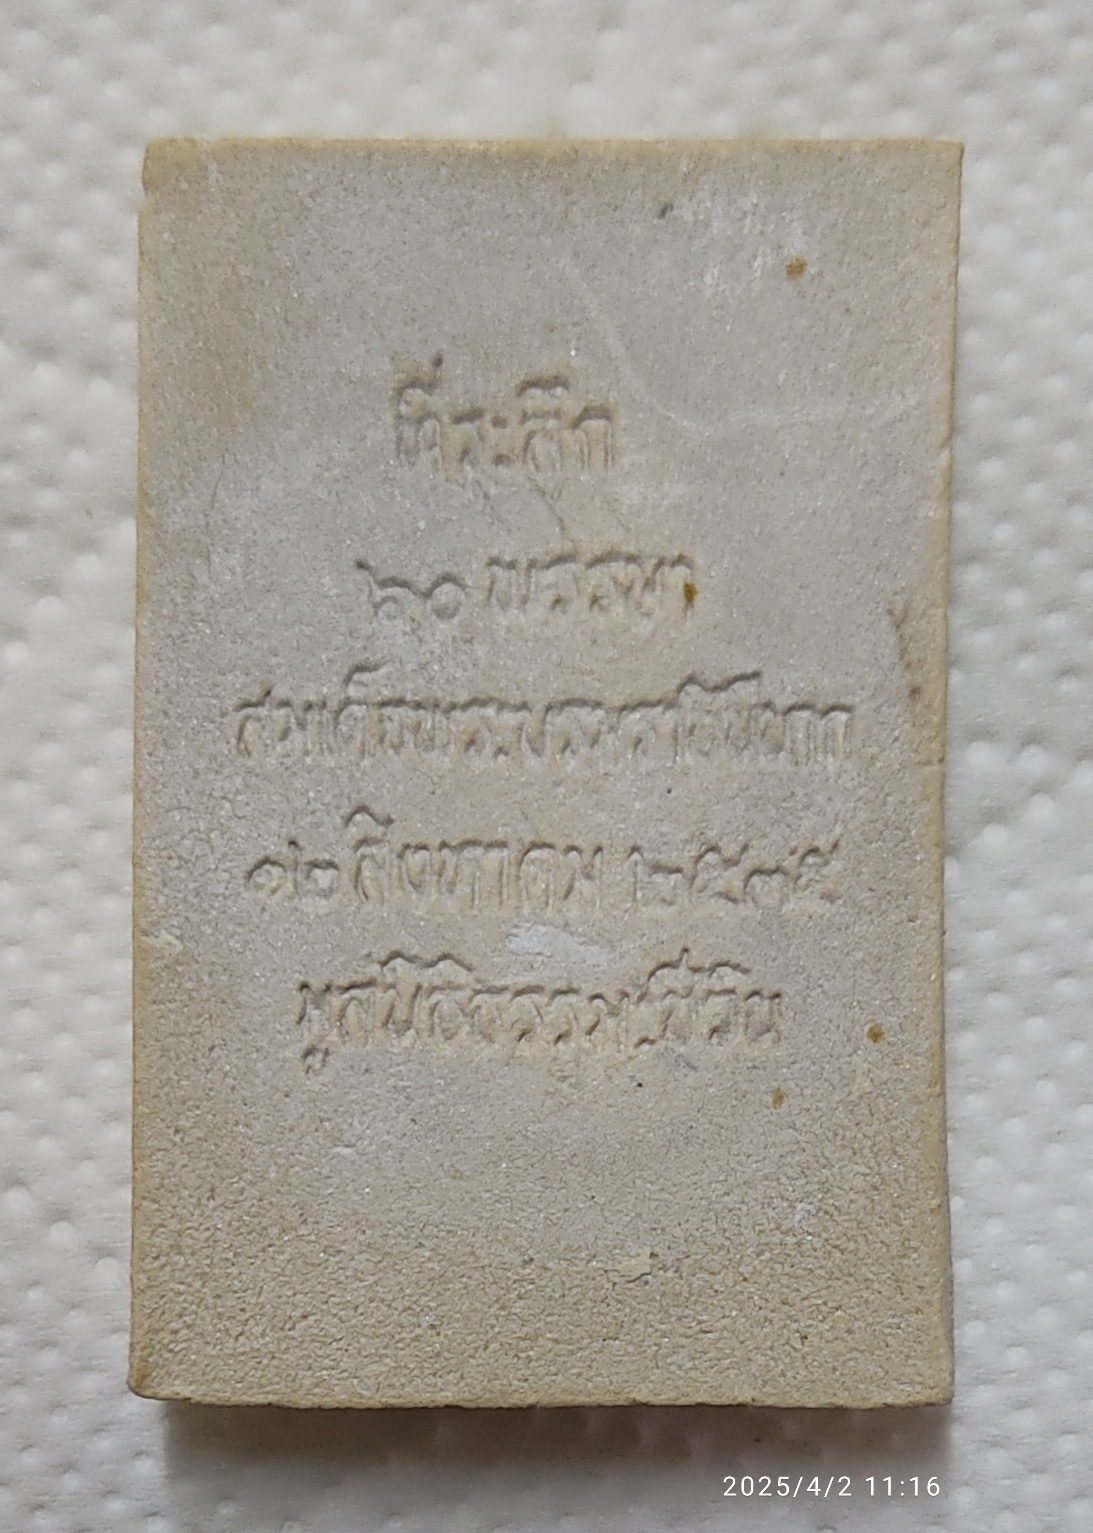 ที่ระลึก
๖๐ พรรษา
สมเด็จพระบรมราชินีนาถ
๑๒ สิงหาคม ๒๕๓๕
มูลนิธิธรรมชีวิน
2025/4/2 11:16